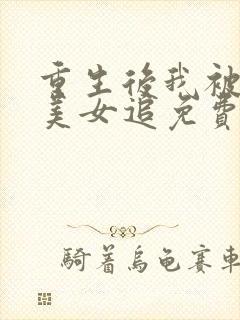 重生後我被
美女追免費
騎着烏龜賽車